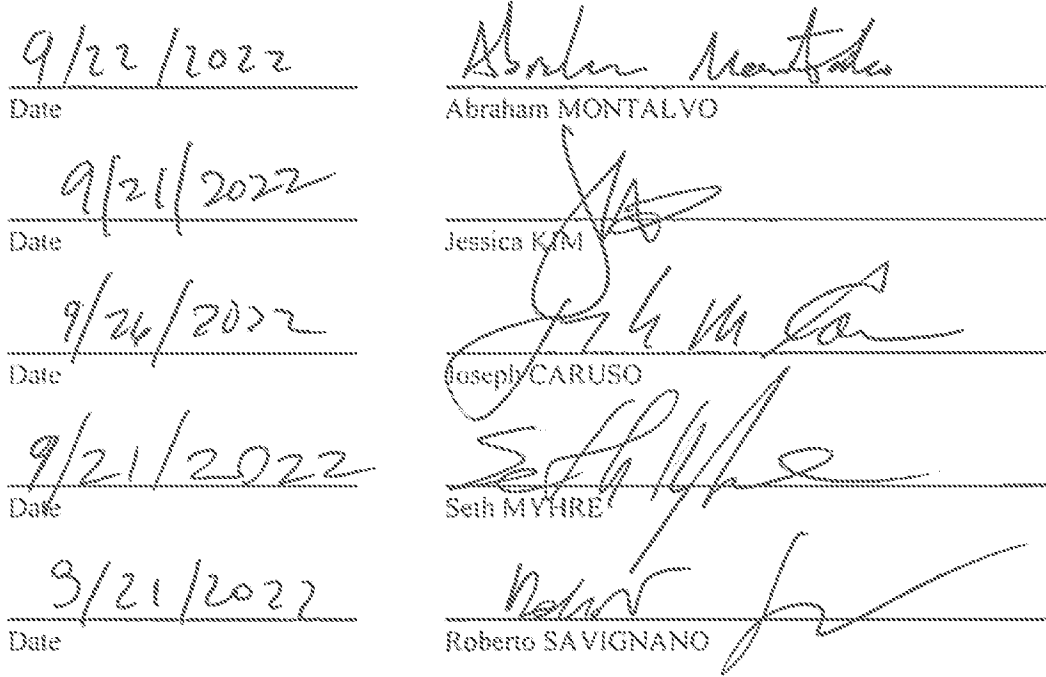 9/22/2022 Abraham Montalvo
Date Abraham MONTALVO
9/21/2022
Date Jessica KIM
9/26/2022 Joseph M Car
Date Joseph CARUSO
9/21/2022 Seth Myhre
Date Seth MYHRE
9/21/2022
Date Roberto SAVIGNANO